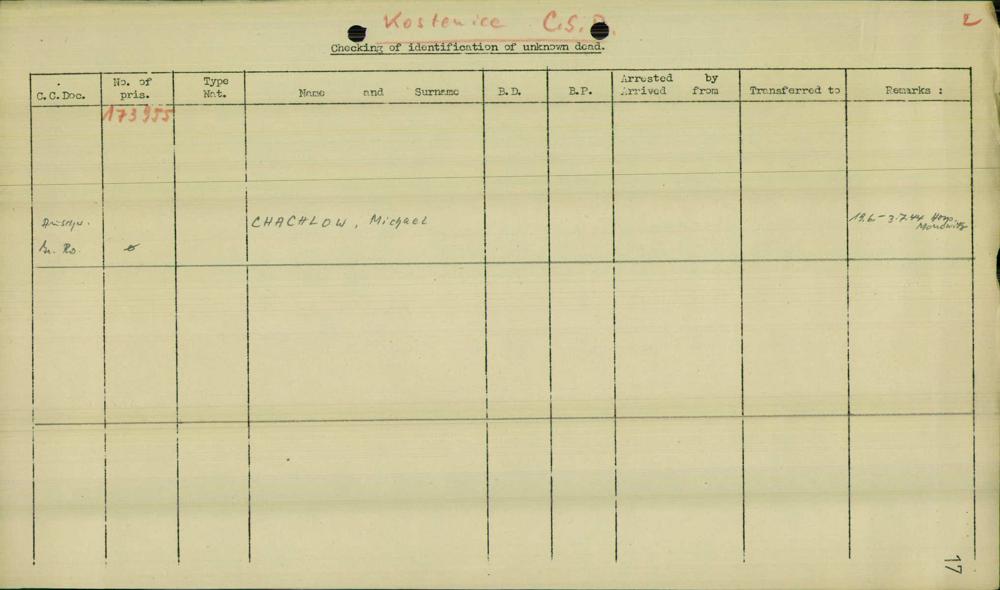 Kostenice C.S.R.
2
Checking of identification of unknown dead.
C.C.Doc.
No. of
pris.
Type
Nat.
Name and Surname
B.D.
B.P.
Arrested by
Arrived from
Transferred to
Remarks :
173955
CHACHLOW, Michael
19.6-3.7.44 Hosp.
Monowitz
17